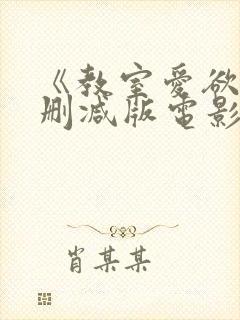 《教室爱欲
删减版电影
肖某某